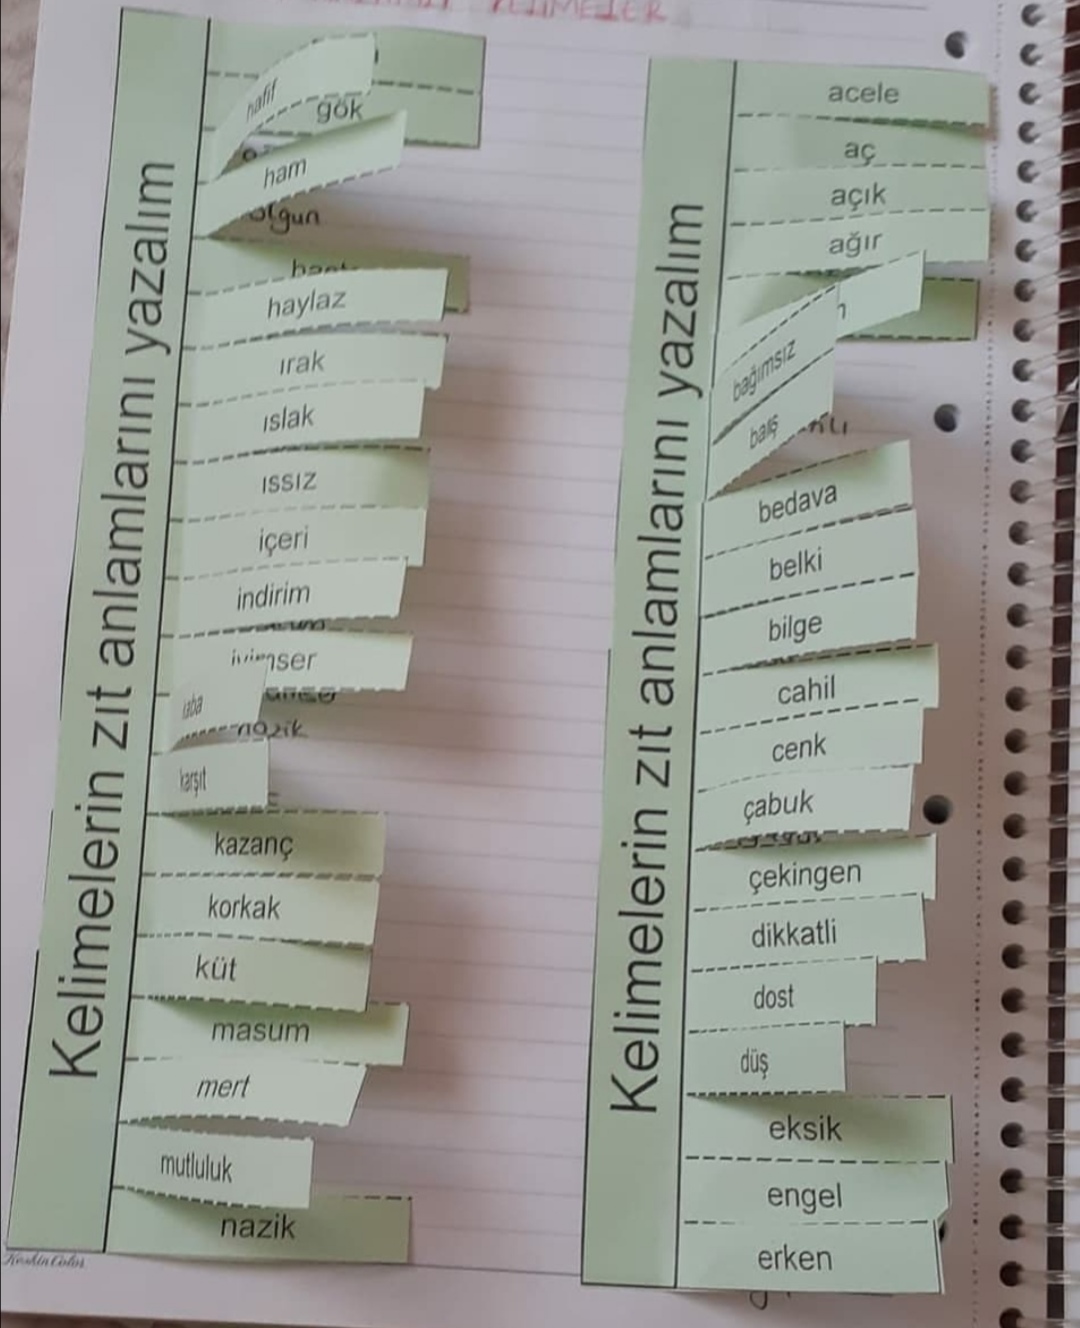 KELİMELER
Kelimelerin zıt anlamlarını yazalım
hafif
gök
ham
olgun
haylaz
ırak
ıslak
ıssız
içeri
indirim
kaba
nazik
karşıt
kazanç
korkak
küt
masum
mert
mutluluk
nazik
Keskin Color
Kelimelerin zıt anlamlarını yazalım
acele
aç
açık
ağır
bağımsız
barış
bedava
belki
bilge
cahil
cenk
çabuk
çekingen
dikkatli
dost
düş
eksik
engel
erken